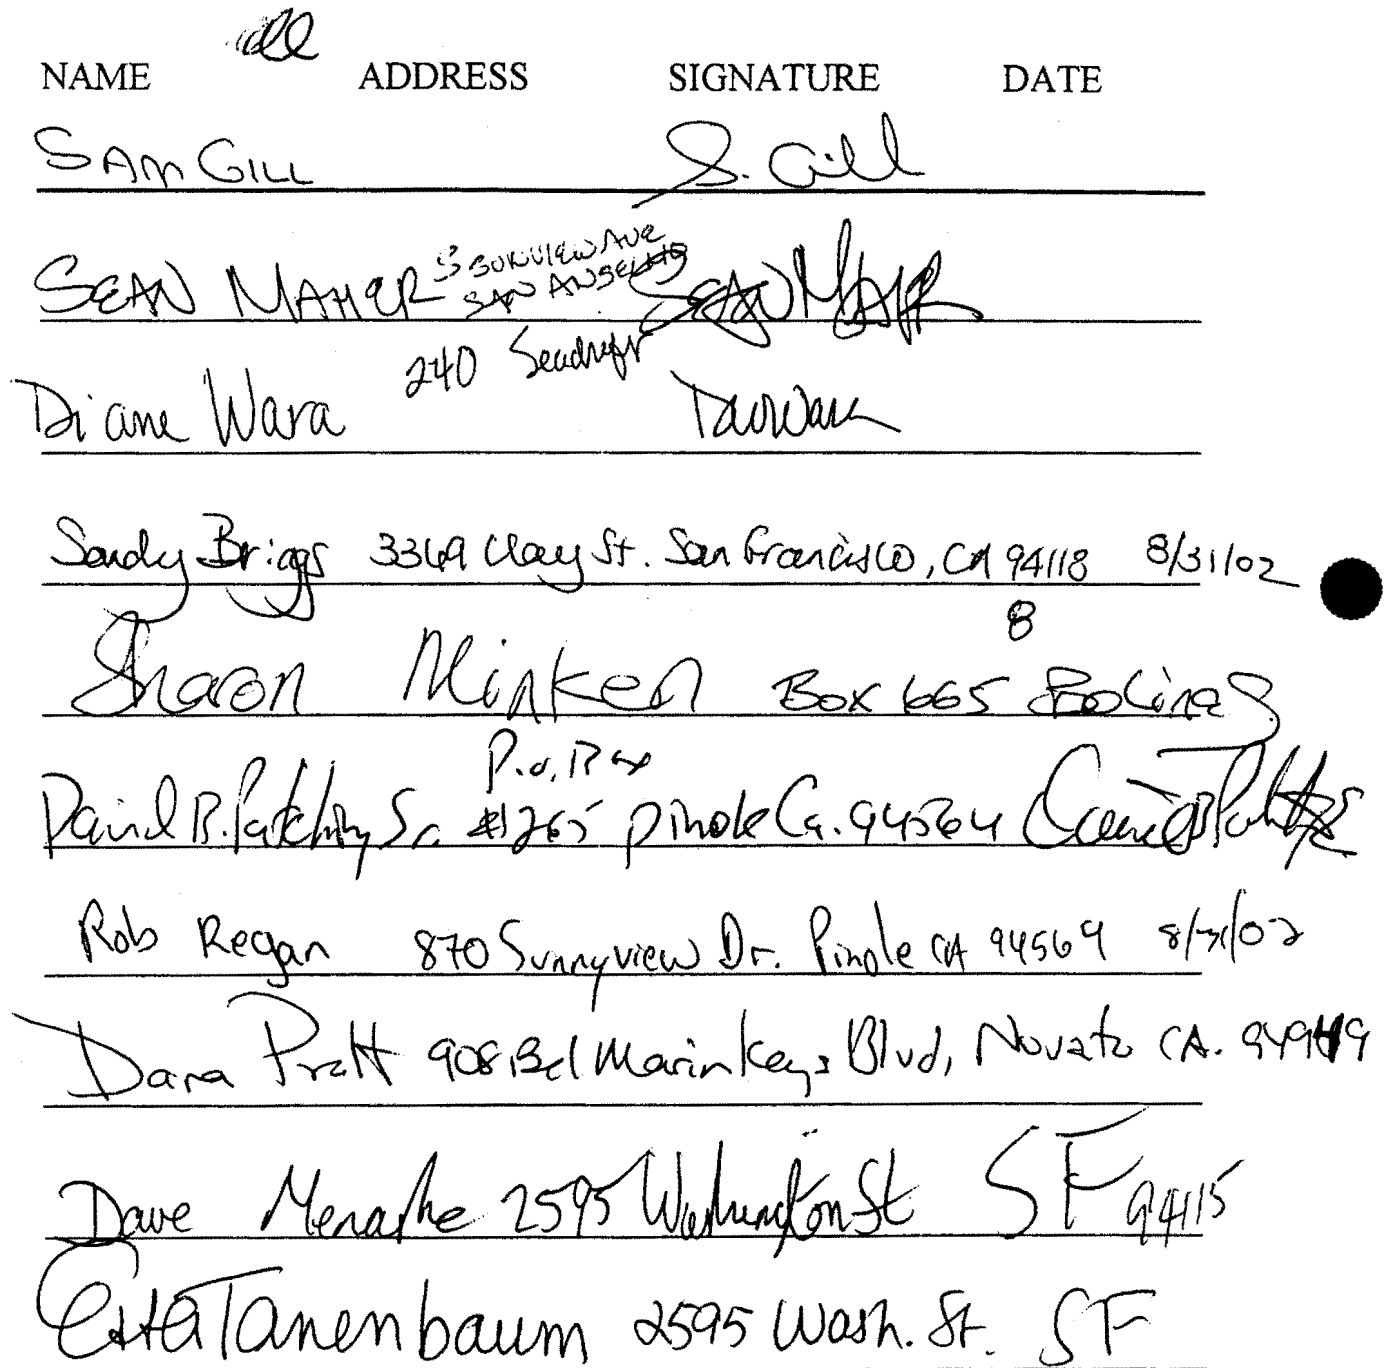 NAME ADDRESS SIGNATURE DATE
SAM GILL S. Gill
SEAN MAHER 5 SUNVIEW AVE SAN ANSELMO SEAN MAHER
Diane Wara 240 Seadrift
Sandy Briggs 3369 Clay St. San Francisco, CA 94118 8/31/02
8
Sharon Minken Box 665 Bolinas
P.O. Box
David B. Sr. #1265 Pinole Ca. 94564
Rob Regan 870 Sunnyview Dr. Pinole CA 94564 8/31/02
Dana Pratt 908 Bel Marin Keys Blvd, Novato CA. 94949
Dave Menashe 2595 Washington St SF 94115
Etta Tanenbaum 2595 Wash. St. SF